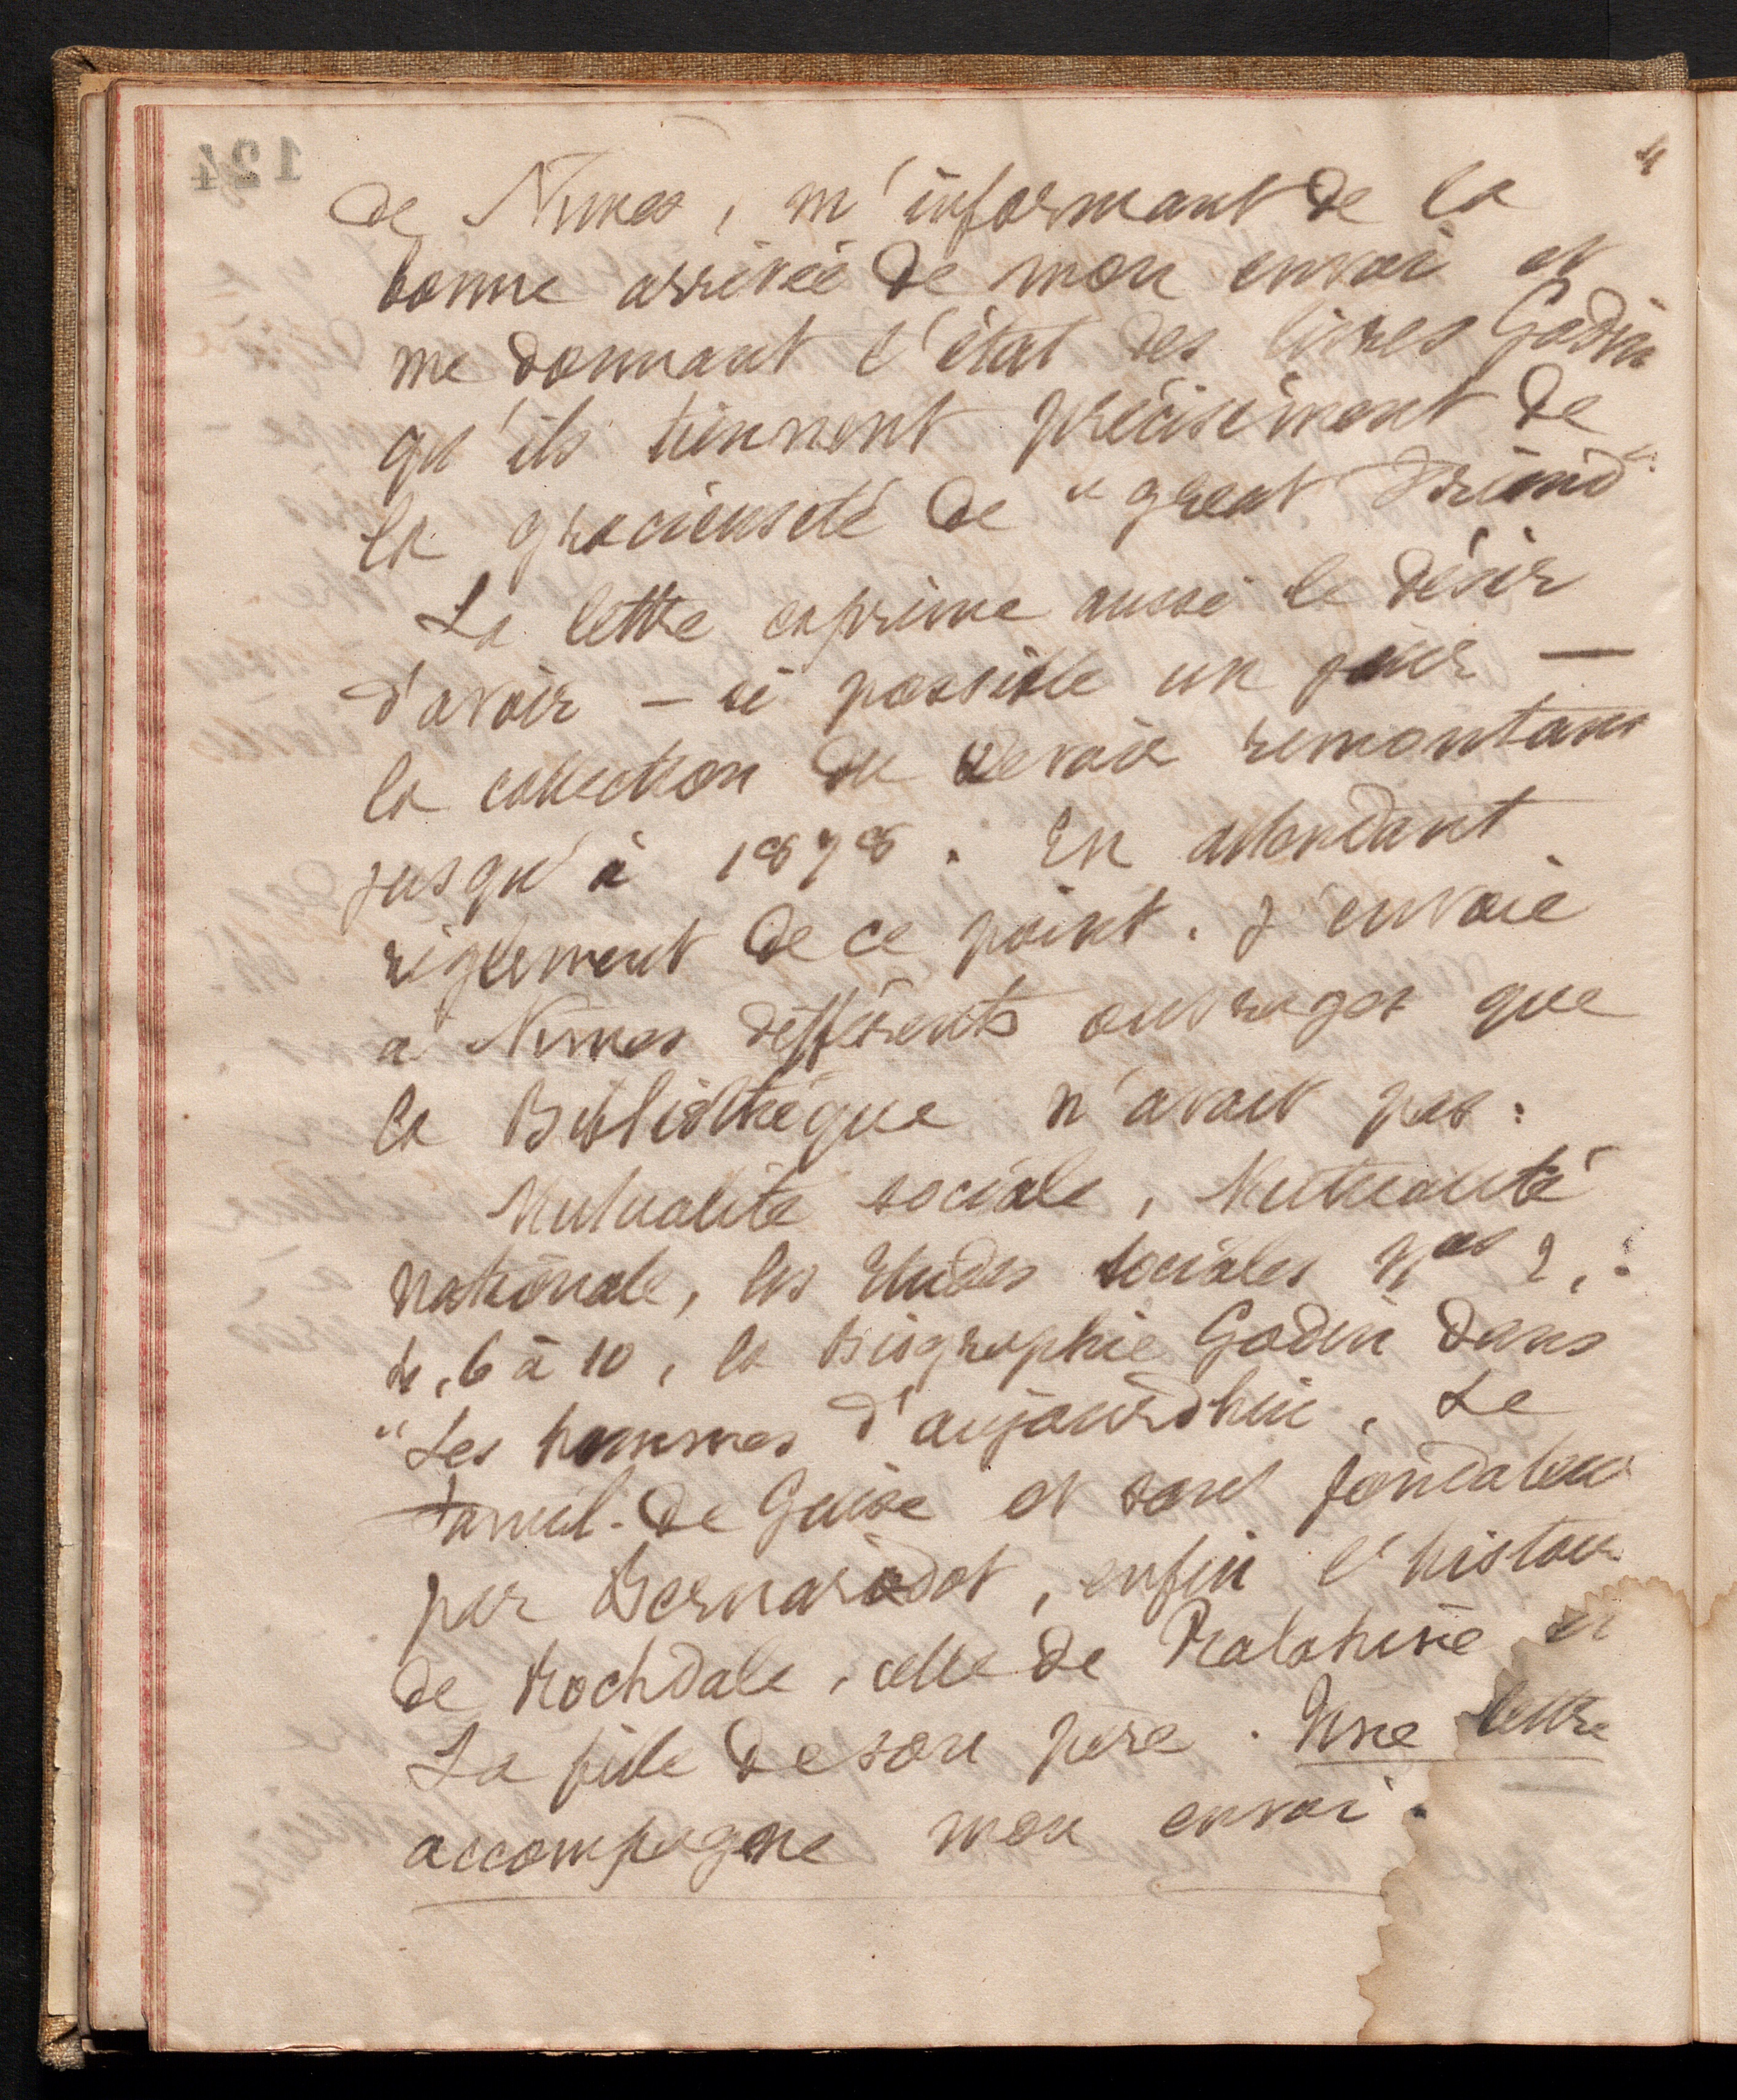 de Nimes, m'informant de la
bonne arrivée de mon envoi et
me donnant l'état des livres Godin
qu'ils tiennent précisément de
la gracieuseté de "great Friend".
La lettre exprime aussi le désir
d'avoir — si possible un jour —
la collection du Devoir remontant
jusqu'à 1878. En attendant
règlement de ce point. J'envoie
à Nimes différents ouvrages que
la Bibliothèque n'avait pas :
Mutualité sociale, Mutualité
nationale, les Etudes sociales Nos 2,
4, 6 à 10, la Biographie Godin dans
"Les hommes d'aujourdhui, Le
Famil. de Guise et son fondateur
par Bernardot, enfin l'histoire
de Rochdale, celle de Ralahine et
La fille de son père. Une lettre
accompagne mon envoi.
124